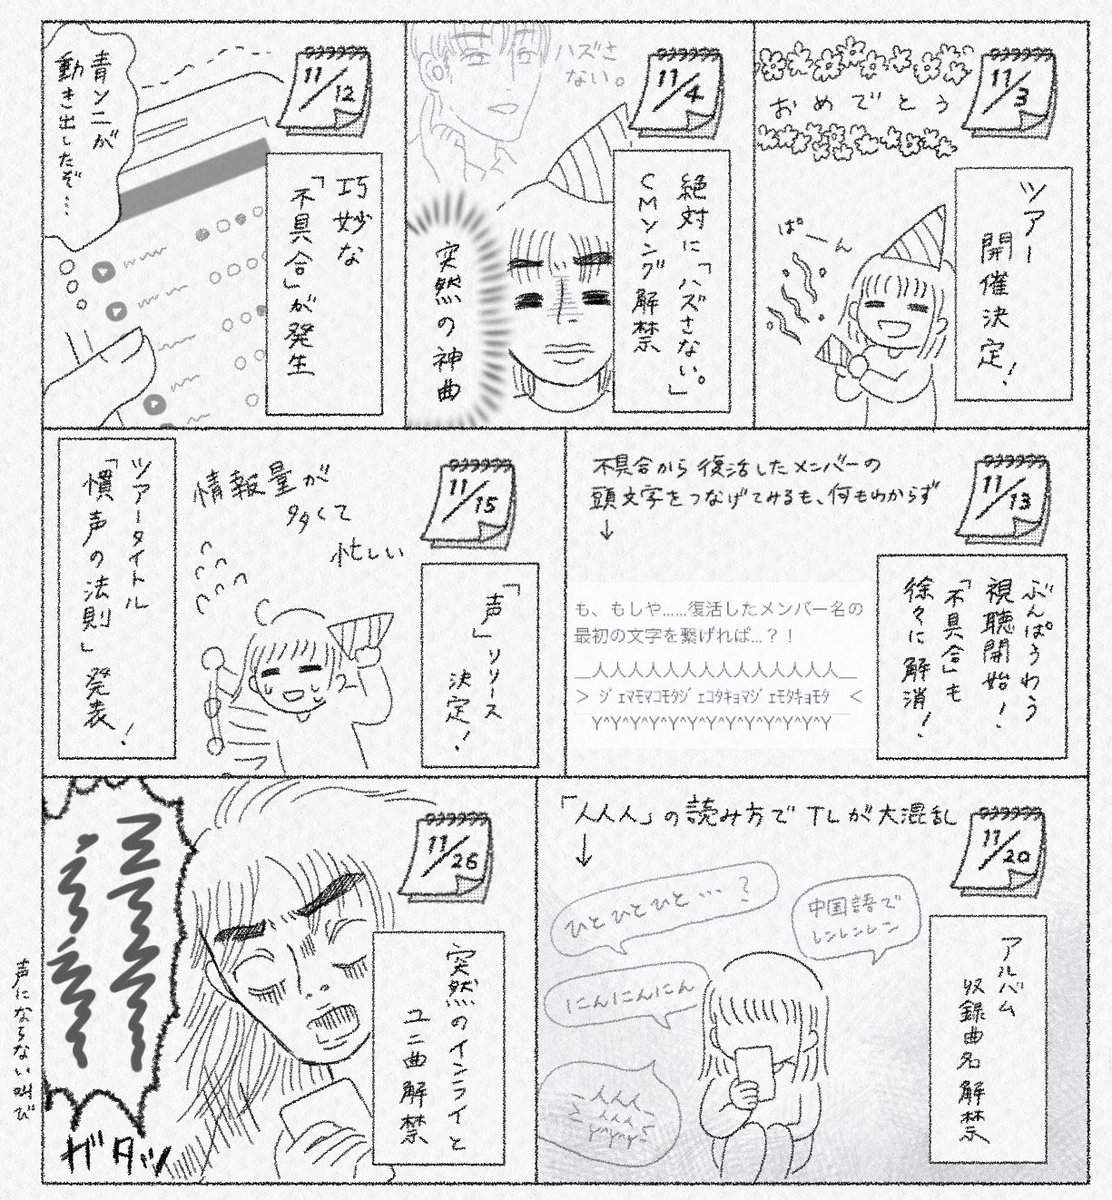 11/3
おめでとう
ツアー
開催決定！
ぱーん
11/4
ハズさ
ない。
絶対に「ハズさない。」
CMソング解禁
突然の神曲
11/12
巧妙な
「不具合」が発生
青ン二が
動き出したぞ…
11/13
不具合から復活したメンバーの
頭文字をつなげてみるも、何もわからず
↓
ぶんぱうわう
視聴開始！
「不具合」も
徐々に解消！
も、もしや……復活したメンバー名の
最初の文字を繋げれば…？！
＿人人人人人人人人人人人人人人＿
＞ ｼﾞｪﾏﾓﾏｺﾓﾀｼﾞｪｺﾀｷｮﾏｼﾞｪﾓﾀｷｮﾓﾀ ＜
Y^Y^Y^Y^Y^Y^Y^Y^Y^Y^Y^Y^Y
11/15
「声」リリース
決定！
情報量が
多くて
忙しい
ツアータイトル
「慣声の法則」発表！
11/20
「人人人」の読み方でTLが大混乱
↓
アルバム
収録曲名解禁
ひとひとひと…？
中国語で
レンレンレン
にんにんにん
人人人
11/26
突然のインライと
ユニ曲解禁
ガタッ
声にならない叫び